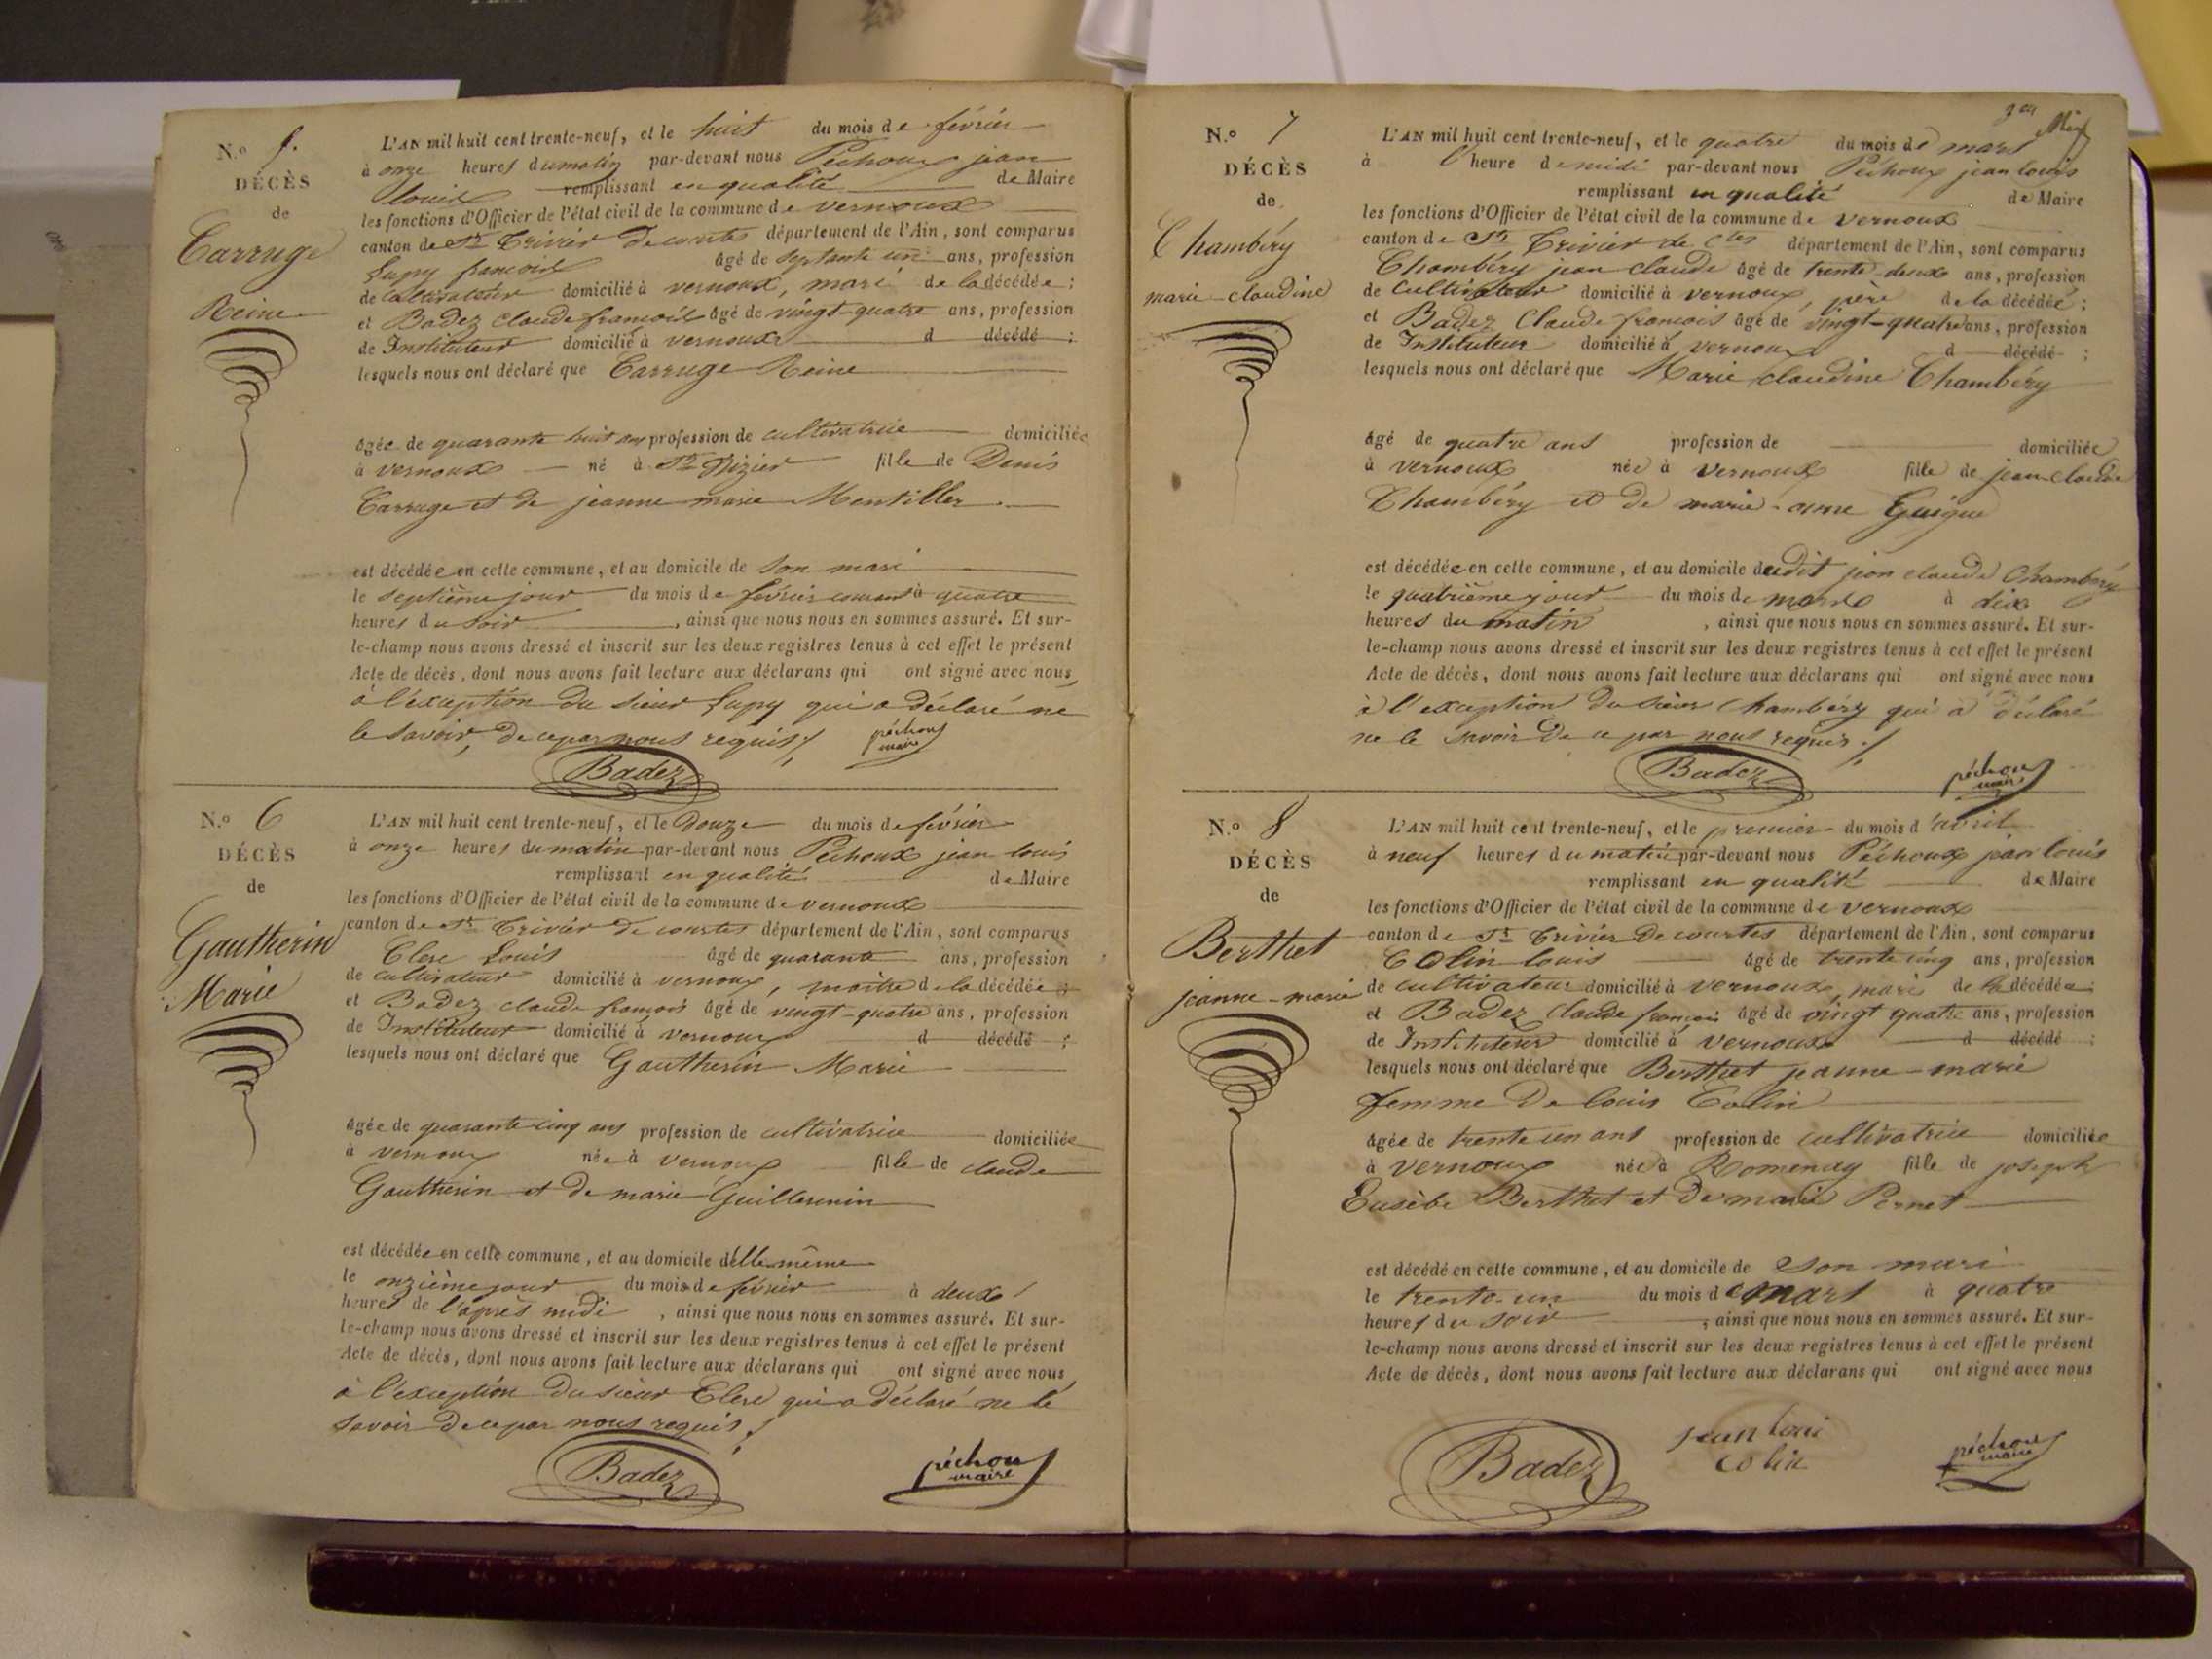 N.o 5.
DÉCÈS
de
Carruge
Reine
L'AN mil huit cent trente-neuf, et le huit du mois de février
à onze heures du matin par-devant nous Péchoux jean
louis remplissant en qualité de Maire
les fonctions d'Officier de l'état civil de la commune de vernoux
canton de St Trivier de courtes département de l'Ain, sont comparus
Lupy françois âgé de septante un ans, profession
de Cultivateur domicilié à vernoux, mari de la décédée;
et Badez claude françois âgé de vingt-quatre ans, profession
de Instituteur domicilié à vernoux d décédé ;
lesquels nous ont déclaré que Carruge Reine
âgée de quarante huit ans profession de cultivatrice domiciliée
à vernoux né à St Nizier fille de Denis
Carruge et de jeanne marie Montiller
est décédée en cette commune, et au domicile de son mari
le septième jour du mois de février courant à quatre
heures du soir, ainsi que nous nous en sommes assuré. Et sur-
le-champ nous avons dressé et inscrit sur les deux registres tenus à cet effet le présent
Acte de décès, dont nous avons fait lecture aux déclarans qui ont signé avec nous,
à l'exception du sieur Lupy qui a déclaré ne
le savoir, de ce par nous requis./.
péchoux
maire
Badez
N.o 6
DÉCÈS
de
Gautherin
Marie
L'AN mil huit cent trente-neuf, et le Douze du mois de février
à onze heures du matin par-devant nous Péchoux jean louis
remplissant en qualité de Maire
les fonctions d'Officier de l'état civil de la commune de vernoux
canton de St Trivier de courtes département de l'Ain, sont comparus
Clerc Louis âgé de quarante ans, profession
de cultivateur domicilié à vernoux, maître de la décédée;
et Badez claude françois âgé de vingt-quatre ans, profession
de Instituteur domicilié à vernoux d décédé ;
lesquels nous ont déclaré que Gautherin Marie
âgée de quarante cinq ans profession de cultivatrice domiciliée
à vernoux née à vernoux fille de claude
Gautherin et de marie Guillermin
est décédée en cette commune, et au domicile d'elle même
le onzième jour du mois de février à deux
heures de l'après midi, ainsi que nous nous en sommes assuré. Et sur-
le-champ nous avons dressé et inscrit sur les deux registres tenus à cet effet le présent
Acte de décès, dont nous avons fait lecture aux déclarans qui ont signé avec nous
à l'exception du sieur Clerc qui a déclaré ne le
savoir de ce par nous requis./.
Badez
péchoux
maire
N.o 7
DÉCÈS
de
Chambéry
marie-claudine
L'AN mil huit cent trente-neuf, et le quatre du mois de mars
à l'heure de midi par-devant nous Péchoux jean louis
remplissant en qualité de Maire
les fonctions d'Officier de l'état civil de la commune de vernoux
canton de St Trivier de Ctes département de l'Ain, sont comparus
Chambéry jean claude âgé de trente-deux ans, profession
de Cultivateur domicilié à vernoux, père de la décédée;
et Badez Claude françois âgé de vingt-quatre ans, profession
de Instituteur domicilié à vernoux d décédé ;
lesquels nous ont déclaré que Marie claudine Chambéry
âgé de quatre ans profession de domiciliée
à vernoux née à vernoux fille de jean claude
Chambéry et de marie-anne Guigue
est décédée en cette commune, et au domicile dudit jean claude Chambéry
le quatrième jour du mois de mars à dix
heures du matin, ainsi que nous nous en sommes assuré. Et sur-
le-champ nous avons dressé et inscrit sur les deux registres tenus à cet effet le présent
Acte de décès, dont nous avons fait lecture aux déclarans qui ont signé avec nous
à l'exception du sieur Chambéry qui a déclaré
ne le savoir de ce par nous requis./.
Badez
péchoux
maire
N.o 8
DÉCÈS
de
Berthet
jeanne-marie
L'AN mil huit cent trente-neuf, et le premier du mois d'avril
à neuf heures du matin par-devant nous Péchoux jean louis
remplissant en qualité de Maire
les fonctions d'Officier de l'état civil de la commune de vernoux
canton de St Trivier De courtes département de l'Ain, sont comparus
Colin louis âgé de trente cinq ans, profession
de cultivateur domicilié à vernoux, mari de la décédée;
et Badez Claude françois âgé de vingt quatre ans, profession
de Instituteur domicilié à vernoux d décédé ;
lesquels nous ont déclaré que Berthet jeanne-marie
femme De louis Colin
âgée de trente un ans profession de cultivatrice domiciliée
à vernoux née à Romenay fille de joseph
Eusèbe Berthet et De marie Pernet
est décédé en cette commune, et au domicile de son mari
le trente-un du mois de mars à quatre
heures du soir, ainsi que nous nous en sommes assuré. Et sur-
le-champ nous avons dressé et inscrit sur les deux registres tenus à cet effet le présent
Acte de décès, dont nous avons fait lecture aux déclarans qui ont signé avec nous
Badez
jean loui
colin
péchoux
maire